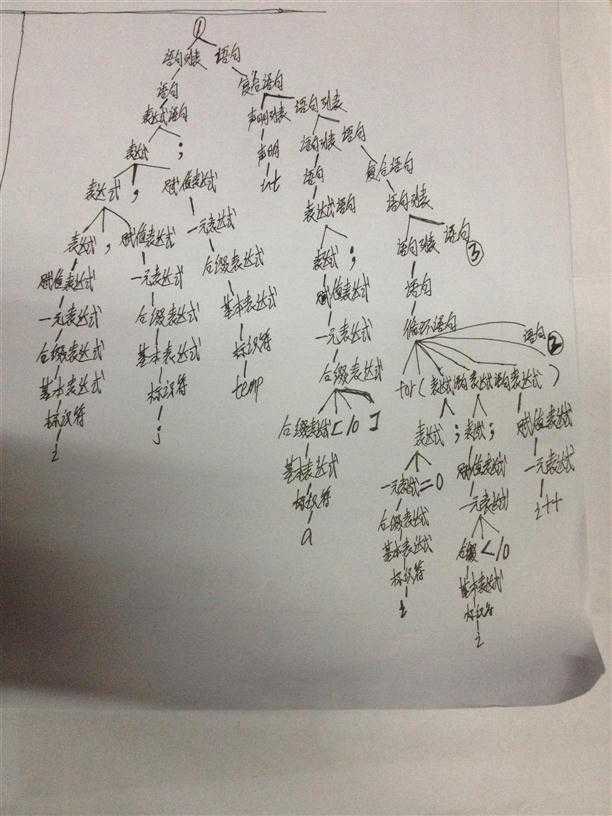 ①
语句列表 语句
语句 复合语句
表达式语句 声明列表 语句列表
表达式 ; 声明 语句列表 语句
表达式 , 赋值表达式 int 语句 复合语句
表达式 , 赋值表达式 一元表达式 表达式语句 语句列表
赋值表达式 一元表达式 后缀表达式 表达式 ; 语句列表 语句 ③
一元表达式 后缀表达式 基本表达式 赋值表达式 语句
后缀表达式 基本表达式 标识符 一元表达式 循环语句 语句 ②
基本表达式 标识符 temp 后缀表达式 for ( 表达式语句 表达式语句 表达式 )
标识符 j 后缀表达式 [ 10 ] 表达式 ; 表达式 ; 赋值表达式
i 基本表达式 一元表达式 = 0 赋值表达式 一元表达式
标识符 后缀表达式 一元表达式 i++
a 基本表达式 后缀 < 10
标识符 基本表达式
i 标识符
i